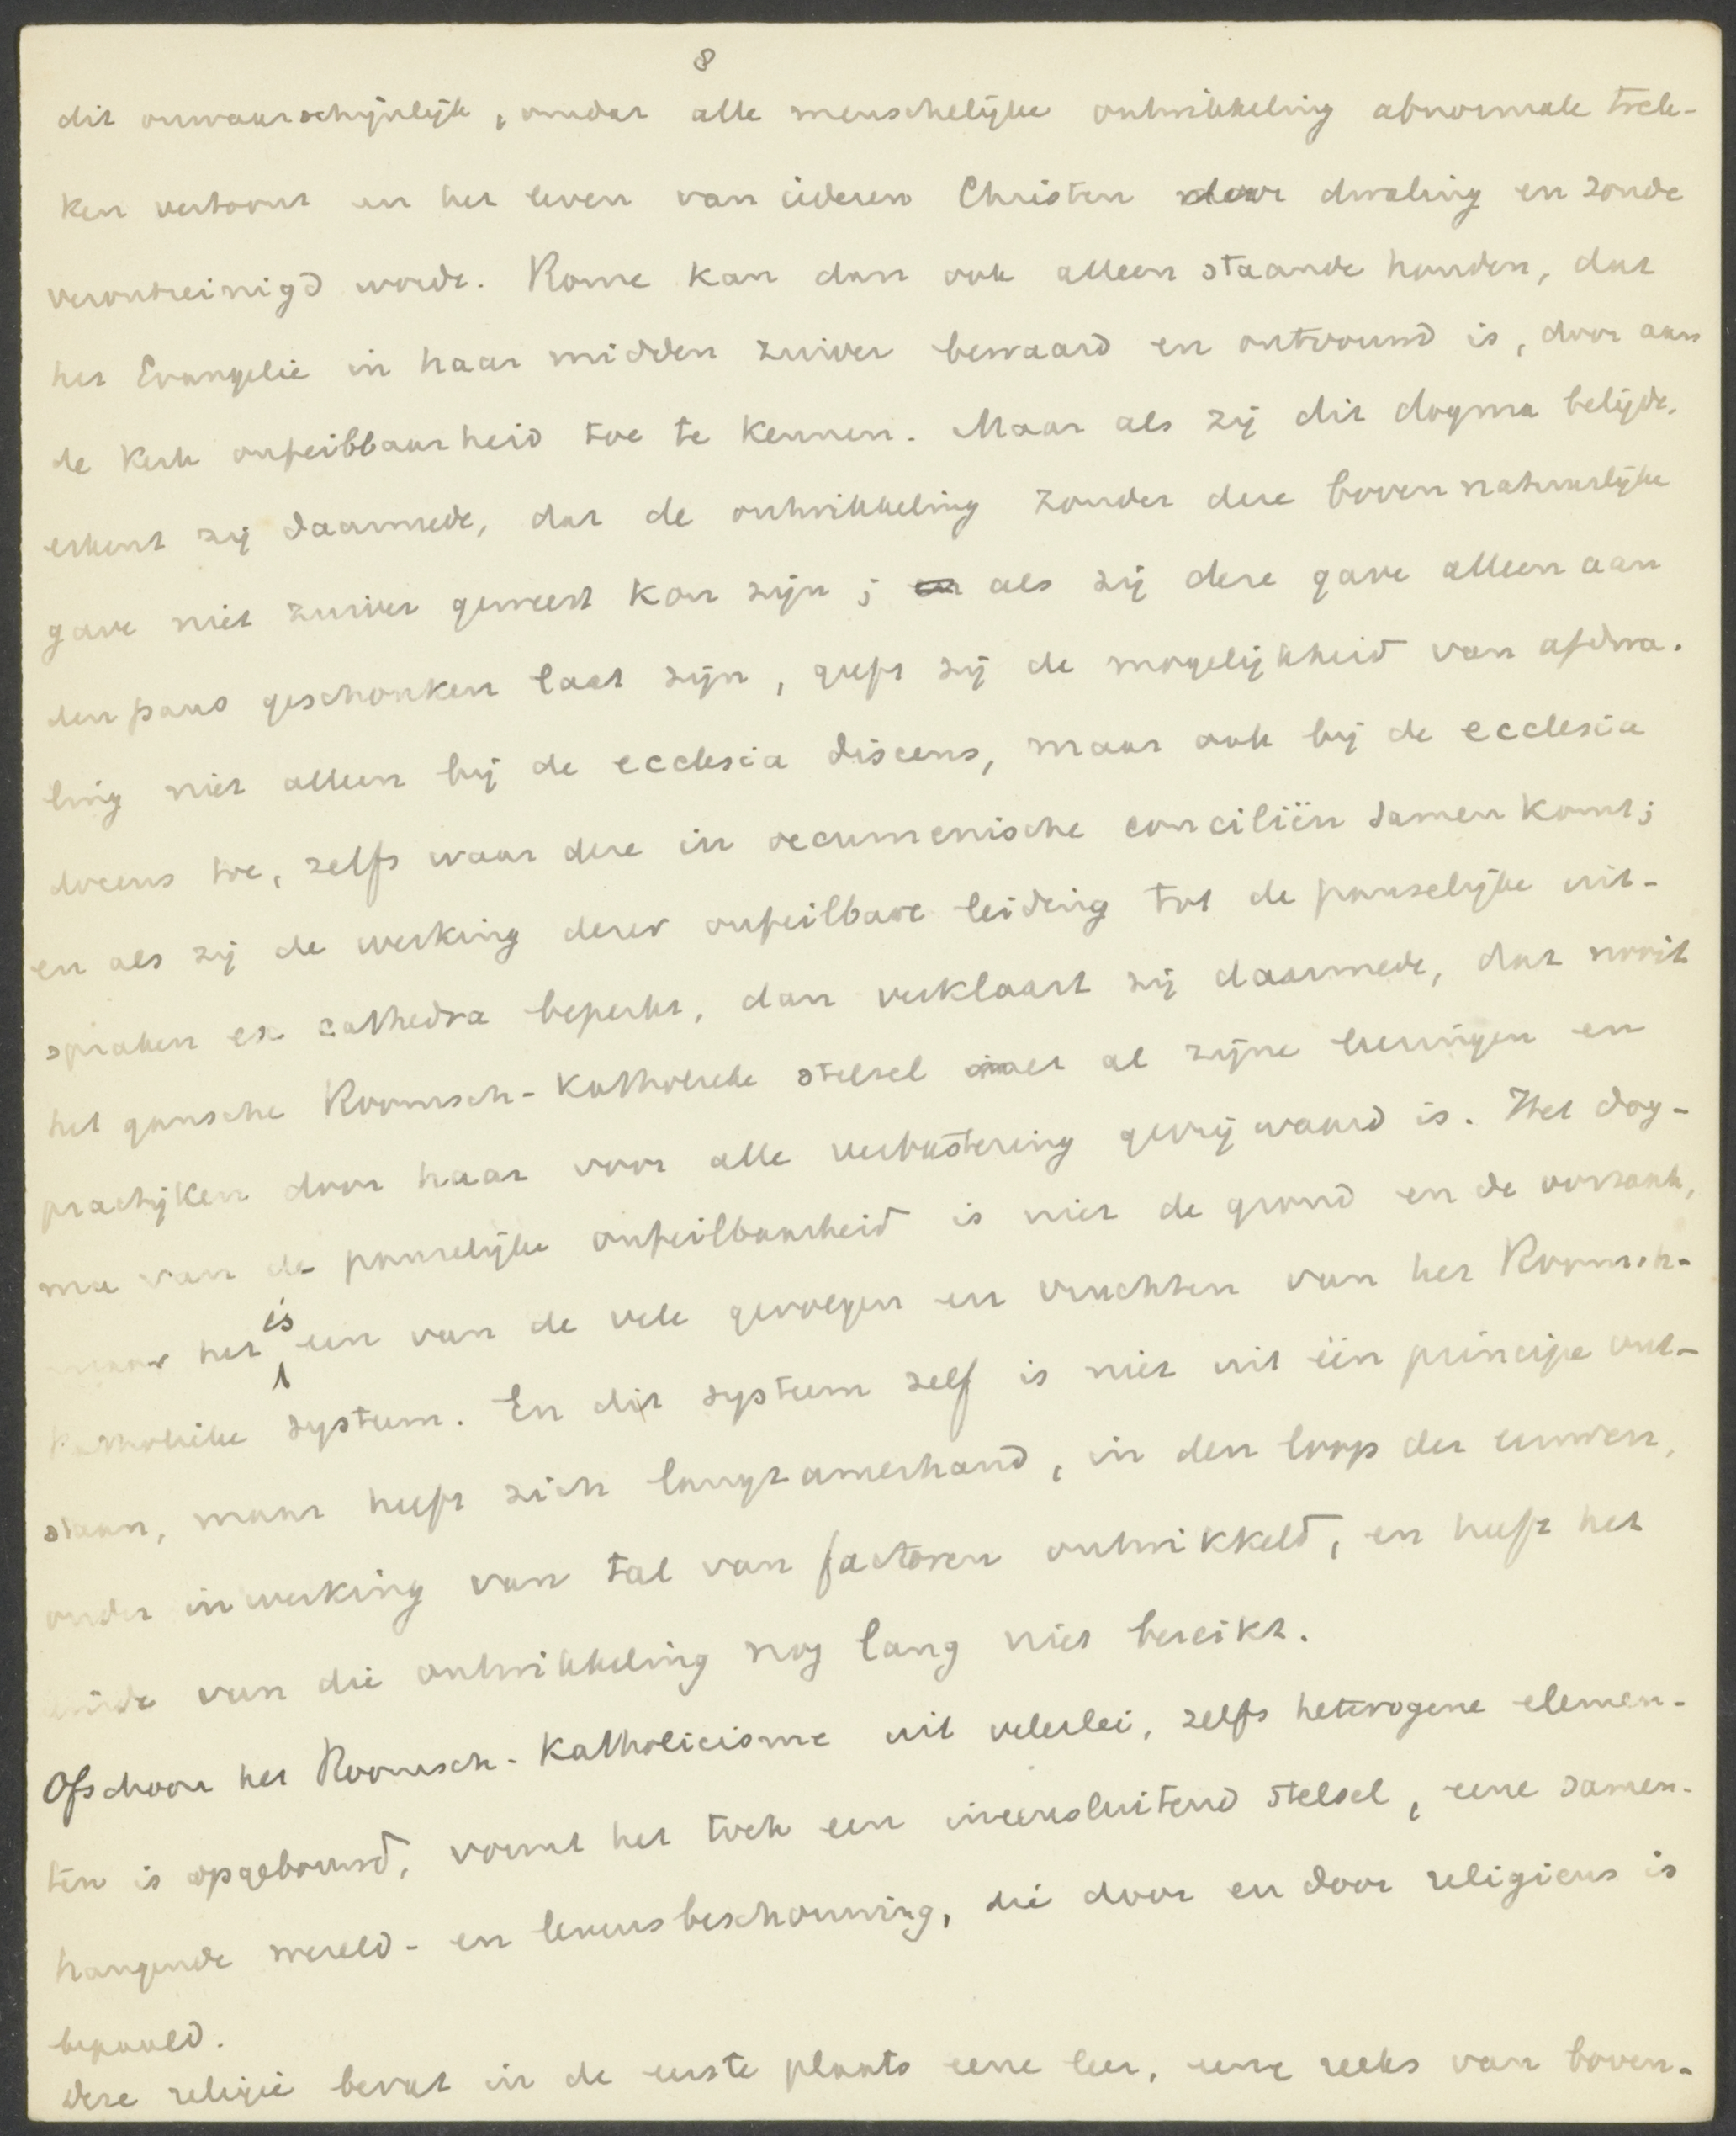 8
dit onwaarschijnlijk, omdat alle menschelijke ontwikkeling abnormale trek-
ken vertoont en het leven van iederen Christen door dwaling en zonde
verontreinigd wordt. Rome kan dan ook alleen staande houden, dat
het Evangelie in haar midden zuiver bewaard en ontvouwd is, door aan
de kerk onfeilbaarheid toe te kennen. Maar als zij dit dogma belijdt,
erkent zij daarmede, dat de ontwikkeling zonder deze bovennatuurlijke
gave niet zuiver geweest kon zijn; als zij deze gave alleen aan
den paus geschonken laat zijn, geeft zij de mogelijkheid van afdwa-
ling niet alleen bij de ecclesia discens, maar ook bij de ecclesia
docens toe, zelfs waar deze in oecumenische conciliën samenkomt;
en als zij de werking dezer onfeilbare leiding tot de pauselijke uit-
spraken ex cathedra beperkt, dan verklaart zij daarmede, dat nooit
het gansche Roomsch-Katholieke stelsel met al zijne leeringen en
practijken door haar voor alle verbastering gevrijwaard is. Het dog-
ma van de pauselijke onfeilbaarheid is niet de grond en de oorzaak,
maar het is een van de vele gevolgen en vruchten van het Roomsch-
Katholieke systeem. En dit systeem zelf is niet uit één principe ont-
staan, maar heeft zich langzamerhand, in den loop der eeuwen,
onder inwerking van tal van factoren ontwikkeld, en heeft het
einde van die ontwikkeling nog lang niet bereikt.
Ofschoon het Roomsch-Katholicisme uit velerlei, zelfs heterogene elemen-
ten is opgebouwd, vormt het toch een ineensluitend stelsel, eene samen-
hangende wereld- en levensbeschouwing, die door en door religieus is
bepaald.
Deze religie bevat in de eerste plaats eene leer, eene reeks van boven-